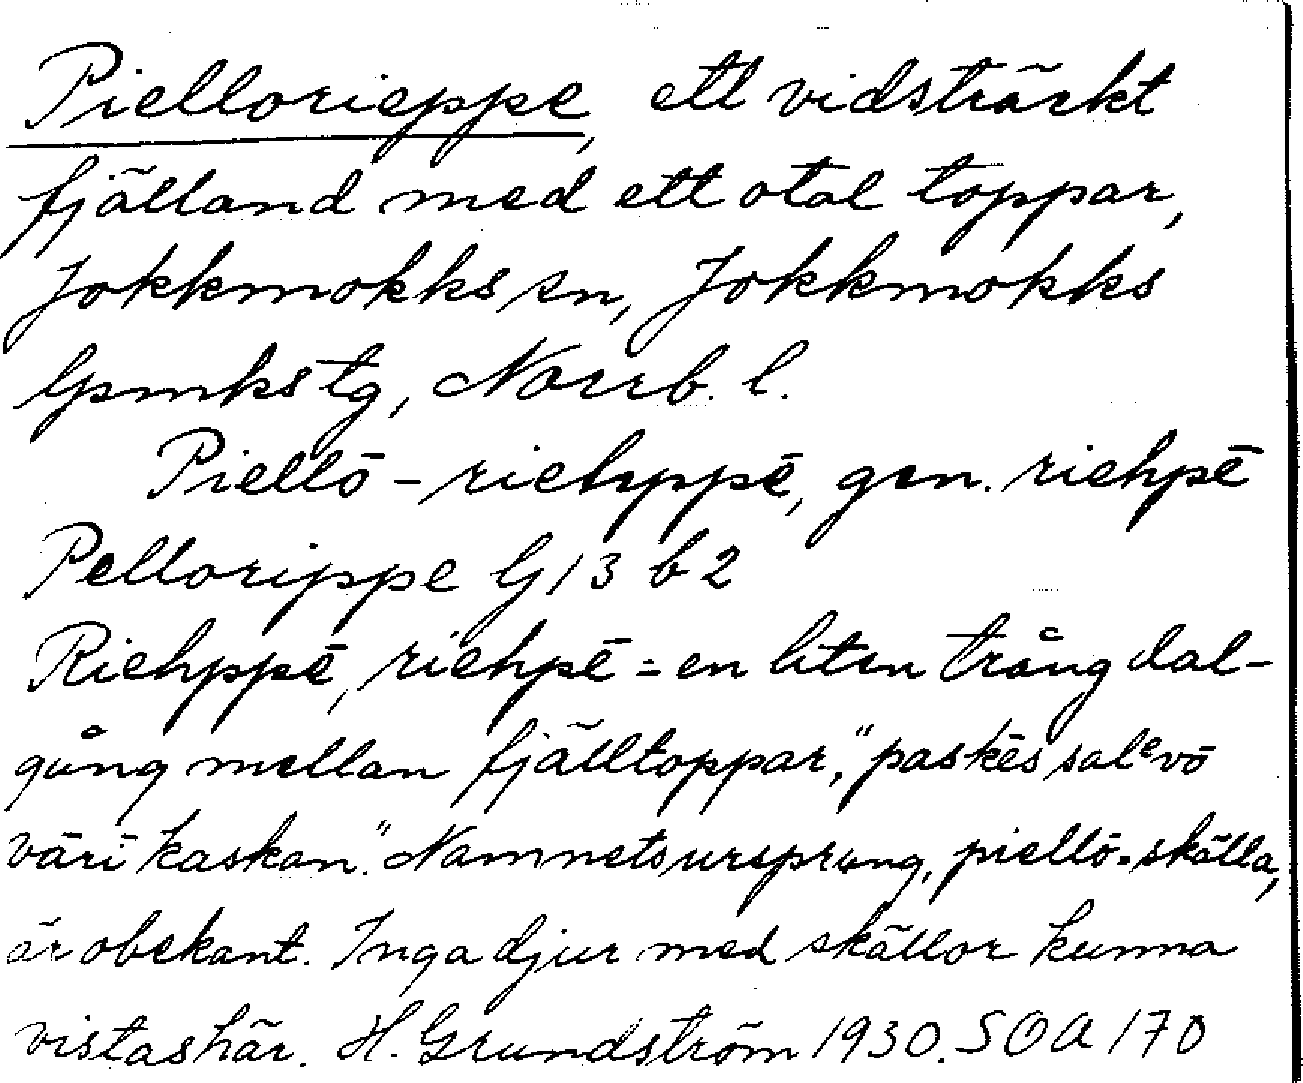 Piellorieppe, ett vidsträckt
fjälland med ett otal toppar,
Jokkmokks sn, Jokkmokks
lpmkstg, Norrb. l.
Piellō-riehppē, gen. riehpē
Pellorippe G 13 b 2
Riehppē, riehpē = en liten trång dal-
gång mellan fjälltoppar, "paskēs salᵉvō
vāri kaskan." Namnets ursprung, piellō = skälla,
är obekant. Inga djur med skällor kunna
vistas här. H. Grundström 1930. SOA 170